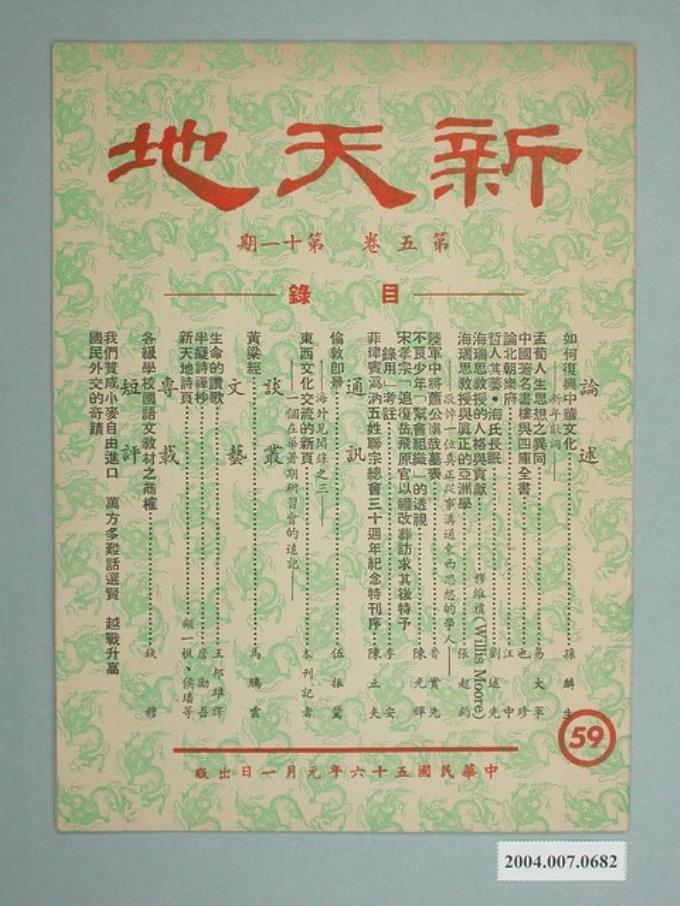 新天地
第五卷 第十一期
目錄
論述
如何復興中華文化……孫麟生
——新年獻詞——
孟荀人生思想之異同……易大軍
中國著名書樓與四庫全書……也珍
論北朝樂府……汪中
哲人其萎•海氏長眠……劉述先
海瑞思教授的人格與貢獻……穆維禮(Willis Moore)
海瑞思教授與真正的亞洲學……張起鈞
——敬悼一位真正從事溝通東西思想的學人——
陸軍中將蕭公慎哉墓表……實先
不良少年「幫會組織」的透視……陳光輝
宋孝宗「追復岳飛原官以禮改葬訪求其後特予
錄用」考註……李安
菲律賓溈汭五姓聯宗總會三十週年紀念特刊序……陳立夫
通訊
倫敦即景……伍振鷟
——海外見聞錄之三——
東西文化交流的新頁……本刊記者
——一個在華暑期研習會的追記——
談叢
黃粱經……馬騰雲
文藝
生命的讚歌……王邦雄譯
半癡詩禪抄……詹勵吾
新天地詩頁……賴一楓、侯璠等
專載
各級學校國語文教材之商榷……錢穆
短評
我們贊成小麥自由進口 萬方多難話選賢 越戰升高
國民外交的奇蹟
59
中華民國五十六年元月一日出版
2004.007.0682